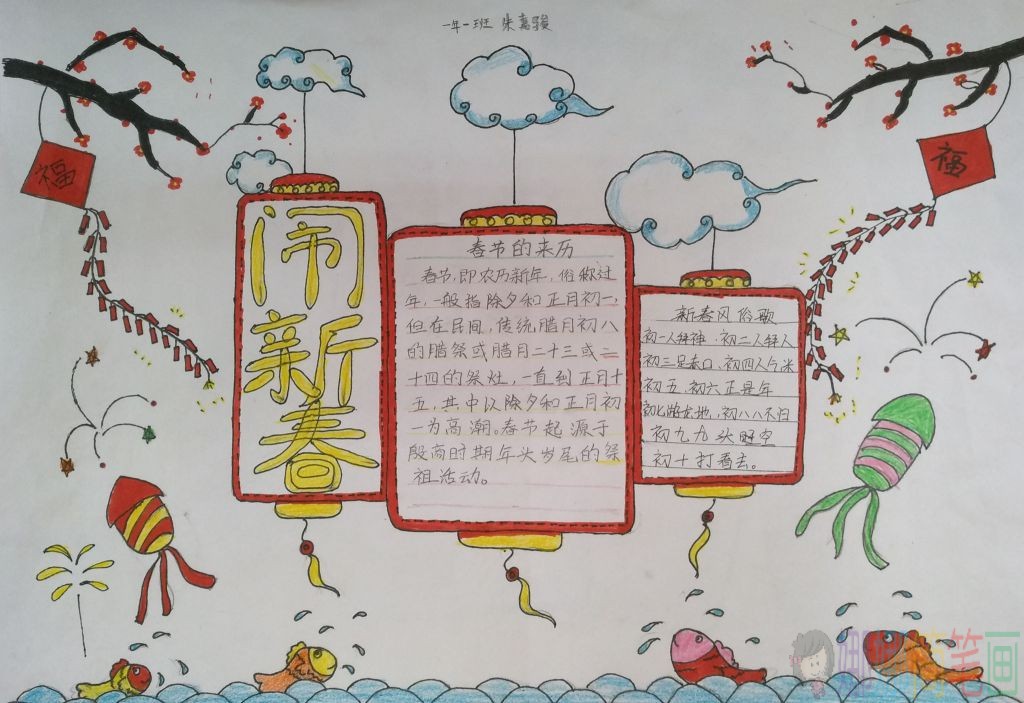 一年一班
福
福
闹新春
春节的来历
春节,即农历新年,俗称过
年,一般指除夕和正月初一,
但在民间,传统腊月初八
的腊祭或腊月二十三或二
十四的祭灶,一直到正月十
五,其中以除夕和正月初
一为高潮。春节起源于
殷商时期年头岁尾的祭
祖活动。
新春风俗歌
初一人拜神,初二人拜人
初三是赤口,初四人乞米
初五,初六正是年
初七,初八八不归
初九九头空
初十打春去。
笔画